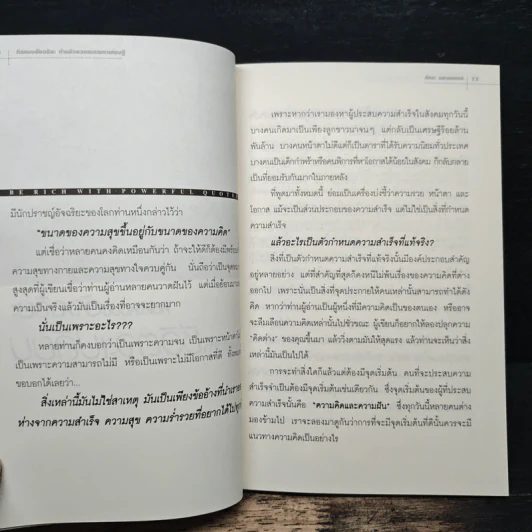 BE RICH WITH POWERFUL QUOTES
มีนักปราชญ์อัจฉริยะของโลกท่านหนึ่งกล่าวไว้ว่า
"ขนาดของความสุขขึ้นอยู่กับขนาดของความคิด"
แต่เชื่อว่าหลายคนคงคิดเหมือนกันว่า ถ้าจะให้ดีก็ต้องมี
ความสุขทางกายและความสุขทางใจควบคู่กัน นั่นถือว่าเป็น
สูงสุดที่ผู้เขียนเชื่อว่าท่านผู้อ่านหลายคนวาดฝันไว้ แต่เมื่อ
ความเป็นจริงแล้วมันเป็นเรื่องที่อาจจะยากมาก
นั่นเป็นเพราะอะไร???
หลายท่านก็คงบอกว่าเป็นเพราะความจน เป็นเพราะหน้าตา
เป็นเพราะความสามารถไม่มี หรือเป็นเพราะไม่มีโอกาสที่ดี
ขอบอกได้เลยว่า...
สิ่งเหล่านี้มันไม่ใช่สาเหตุ มันเป็นเพียงข้ออ้างที่นำเรา
ห่างจากความสำเร็จ ความสุข ความร่ำรวยที่อยากได้
เพราะหากว่าเรามองหาผู้ประสบความสำเร็จในสังคมทุกวันนี้
บางคนเกิดมาเป็นเพียงลูกชาวนาจนๆ แต่กลับเป็นเศรษฐีร้อยล้าน
พันล้าน บางคนหน้าตาไม่ดีแต่ก็เป็นดาราที่ได้รับความนิยมทั่วประเทศ
บางคนเป็นเด็กกำพร้าหรือคนพิการที่หาโอกาสได้น้อยในสังคม ก็กลับกลาย
เป็นที่ยอมรับกันมากในภายหลัง
ที่พูดมาทั้งหมดนี้ ย่อมเป็นเครื่องบ่งชี้ว่าความรวย หน้าตา และ
โอกาส แม้จะเป็นส่วนประกอบของความสำเร็จ แต่ไม่ใช่เป็นสิ่งที่กำหนด
ความสำเร็จ
แล้วอะไรเป็นตัวกำหนดความสำเร็จที่แท้จริง?
สิ่งที่เป็นตัวกำหนดความสำเร็จที่แท้จริงนั้นมีองค์ประกอบสำคัญ
อยู่หลายอย่าง แต่ที่สำคัญที่สุดก็คงหนีไม่พ้นเรื่องของความคิดที่ต่าง
ออกไป เพราะนั่นเป็นสิ่งที่จุดประกายให้คนเหล่านั้นสามารถทำได้ดัง
คิด หากว่าท่านผู้อ่านเป็นผู้หนึ่งที่มีความคิดเป็นของตนเอง หรืออาจ
จะลืมเลือนความคิดเหล่านั้นไปชั่วขณะ ผู้เขียนก็อยากให้ลองปลุกความ
"คิดต่าง" ของคุณขึ้นมา แล้ววิ่งตามมันให้สุดแรง แล้วท่านจะเห็นว่าสิ่ง
เหล่านี้มันเป็นไปได้
การจะทำสิ่งใดก็แล้วแต่ต้องมีจุดเริ่มต้น คนที่จะประสบความ
สำเร็จจำเป็นต้องมีจุดเริ่มต้นเช่นเดียวกัน ซึ่งจุดเริ่มต้นของผู้ที่ประสบ
ความสำเร็จนั้นคือ "ความคิดและความฝัน" ซึ่งทุกวันนี้หลายคนต่าง
มองข้ามไป เราจะลองมาดูกันว่าการที่จะมีจุดเริ่มต้นที่ดีนั้นควรจะมี
แนวทางความคิดเป็นอย่างไร